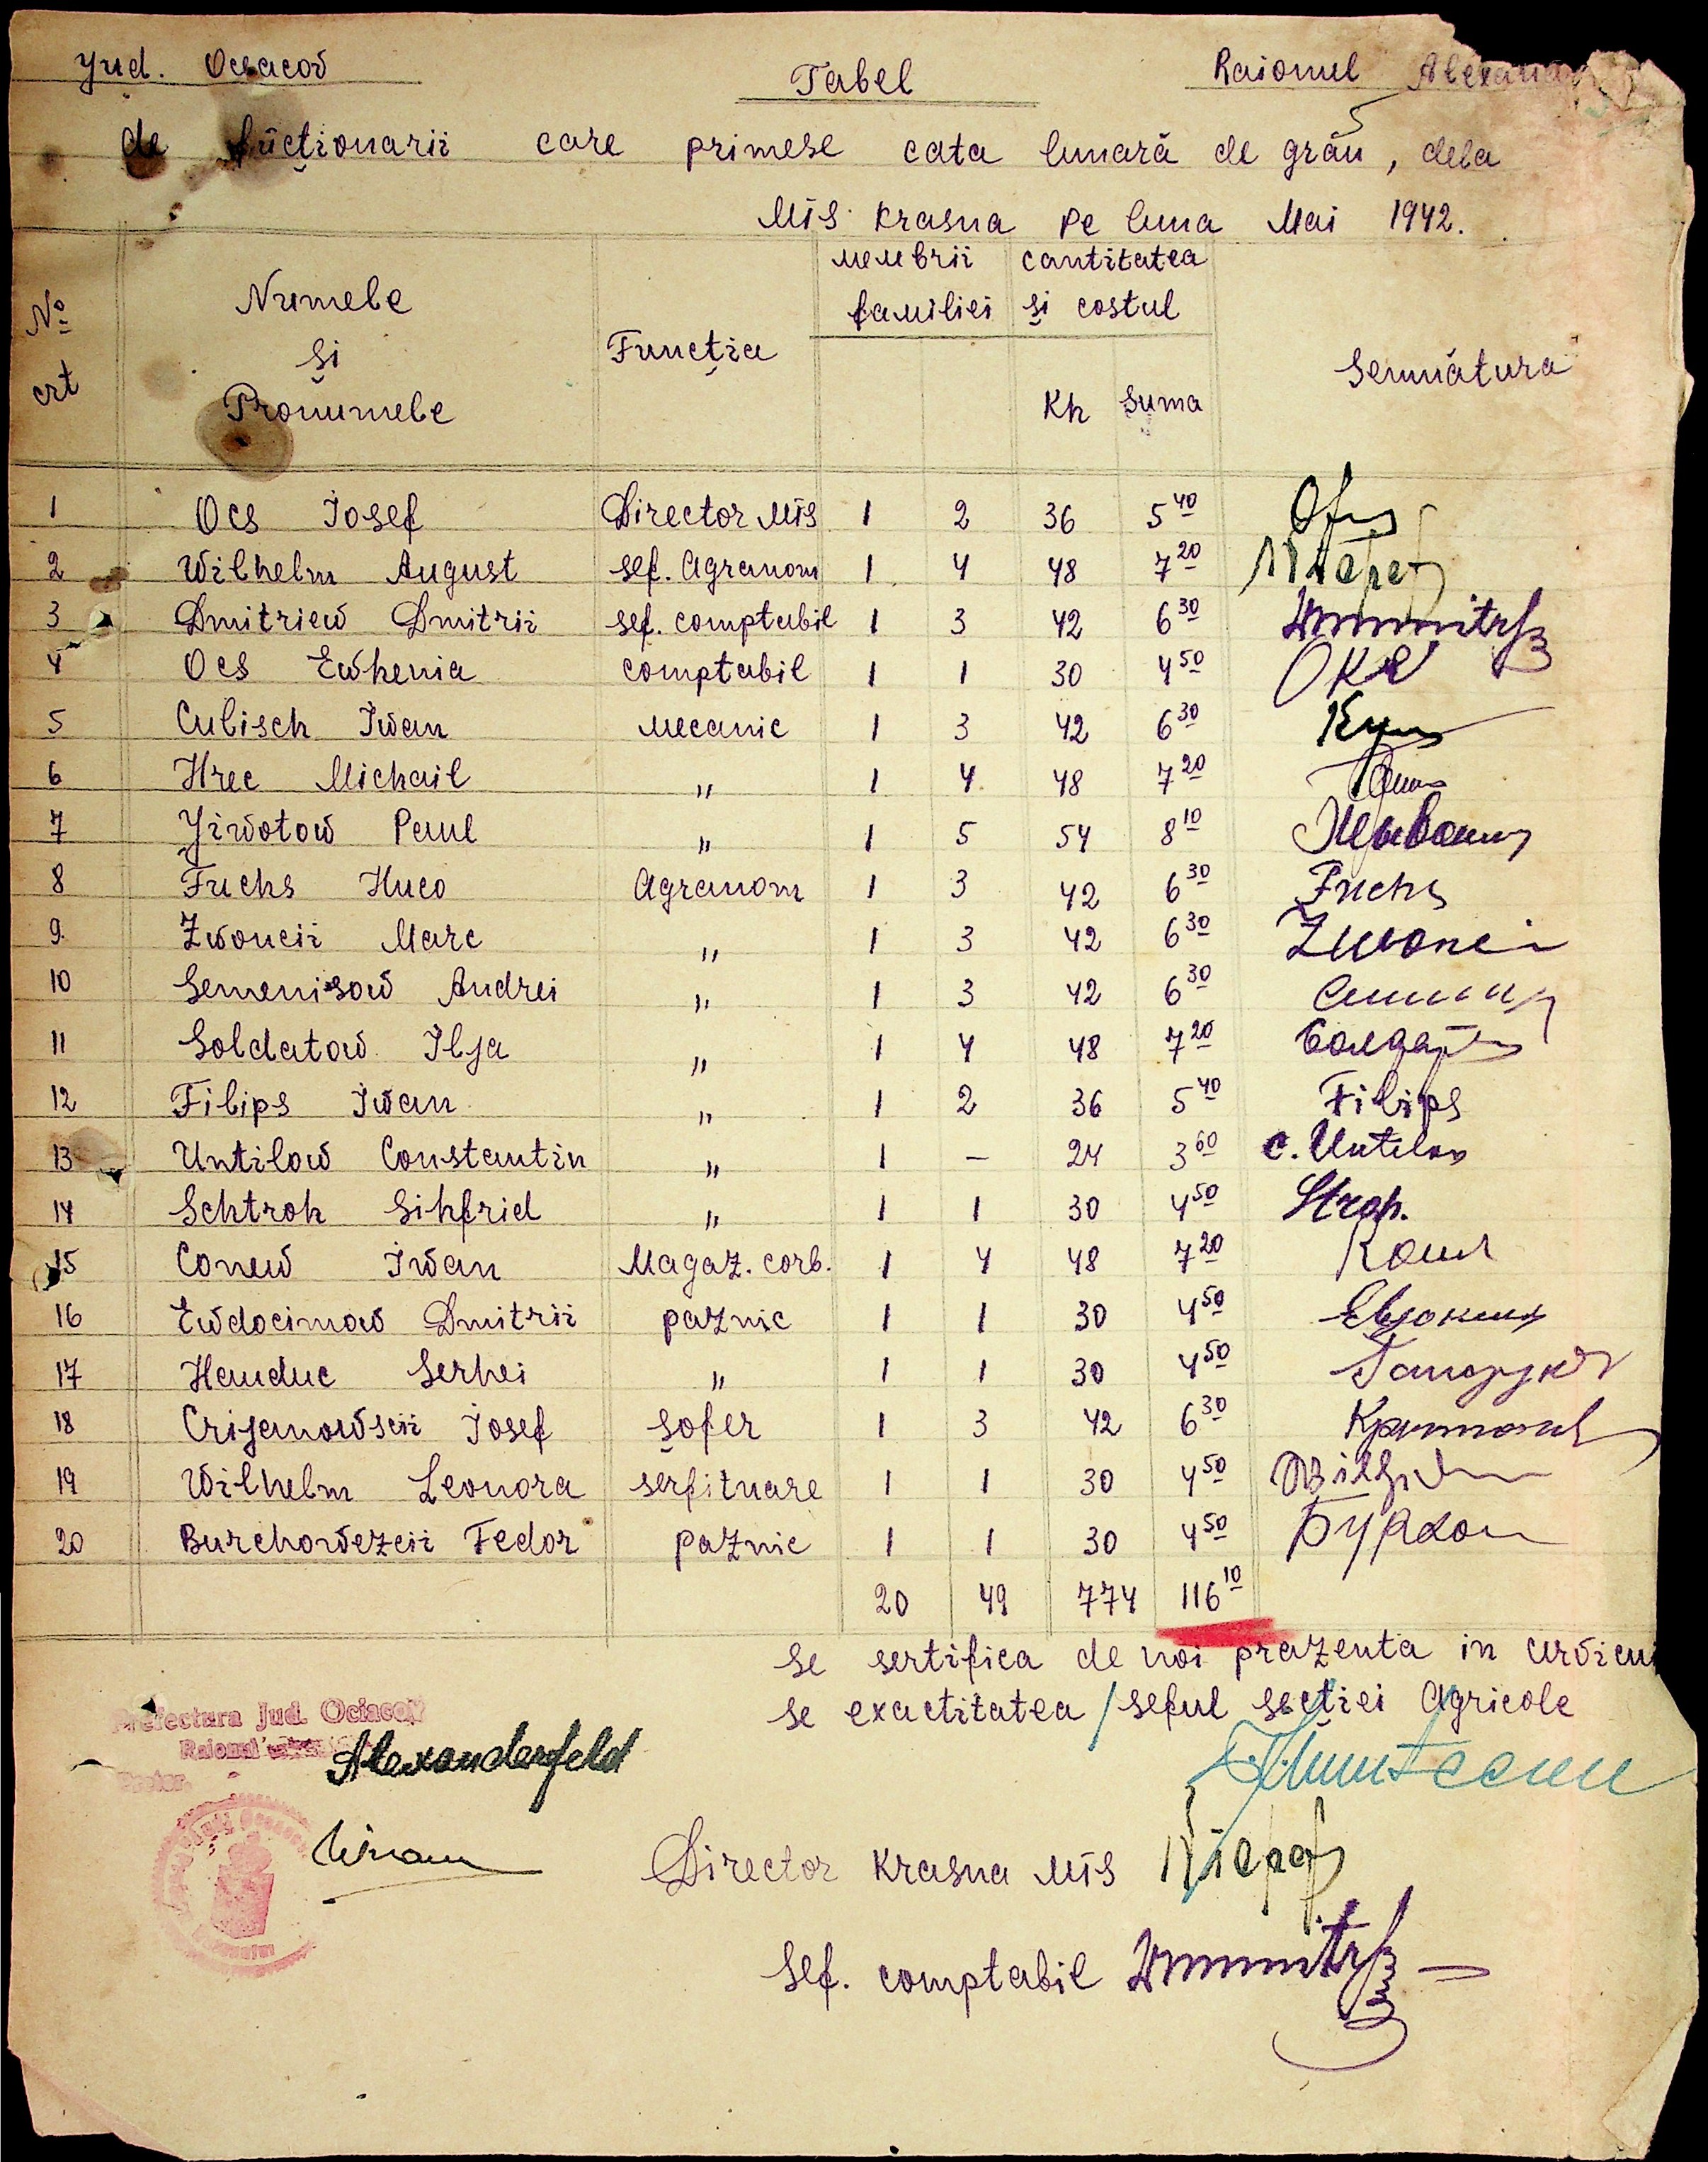 Jud. Ociacov Tabel Raionul Alexand
de fucționarii care primesc cata lunară de grău, dela
MTS Krasna pe luna Mai 1942.
№ crt Numele și Pronumele Funcția membrii familiei cantitatea și costul Kh Suma Semnătura
1 Ocs Iosef Director MTS 1 2 36 5 40
2 Wilhelm August sef. Agranom 1 4 48 7 20
3 Dmitriew Dmitrii sef. comptabil 1 3 42 6 30
4 Ocs Ewhenia comptabil 1 1 30 4 50
5 Cubisch Iwan mecanic 1 3 42 6 30
6 Hrec Michail " 1 4 48 7 20
7 Jiwotow Paul " 1 5 54 8 10
8 Fuchs Huco Agranom 1 3 42 6 30 Fuchs
9. Zwoncii Marc " 1 3 42 6 30
10 Semenisow Andrei " 1 3 42 6 30
11 Soldatow Ilja " 1 4 48 7 20
12 Filips Iwan " 1 2 36 5 40 Filips
13 Untilow Constantin " 1 – 24 3 60 C. Untilov
14 Schtroh Sihfrid " 1 1 30 4 50 Stroh.
15 Conew Iwan Magaz. corb. 1 4 48 7 20
16 Ewdocimow Dmitrii paznic 1 1 30 4 50
17 Handuc Serhei " 1 1 30 4 50
18 Crijanowscii Iosef șofer 1 3 42 6 30
19 Wilhelm Leonora serfituare 1 1 30 4 50
20 Burchowezcii Fedor paznic 1 1 30 4 50
20 49 774 116 10
se sertifica de noi prazenta in
se exactitatea / seful secției Agricole
Prefectura Jud. Ociacov
Raionul Alexanderfeld
Pretor.
Director Krasna MTS
sef. comptabil